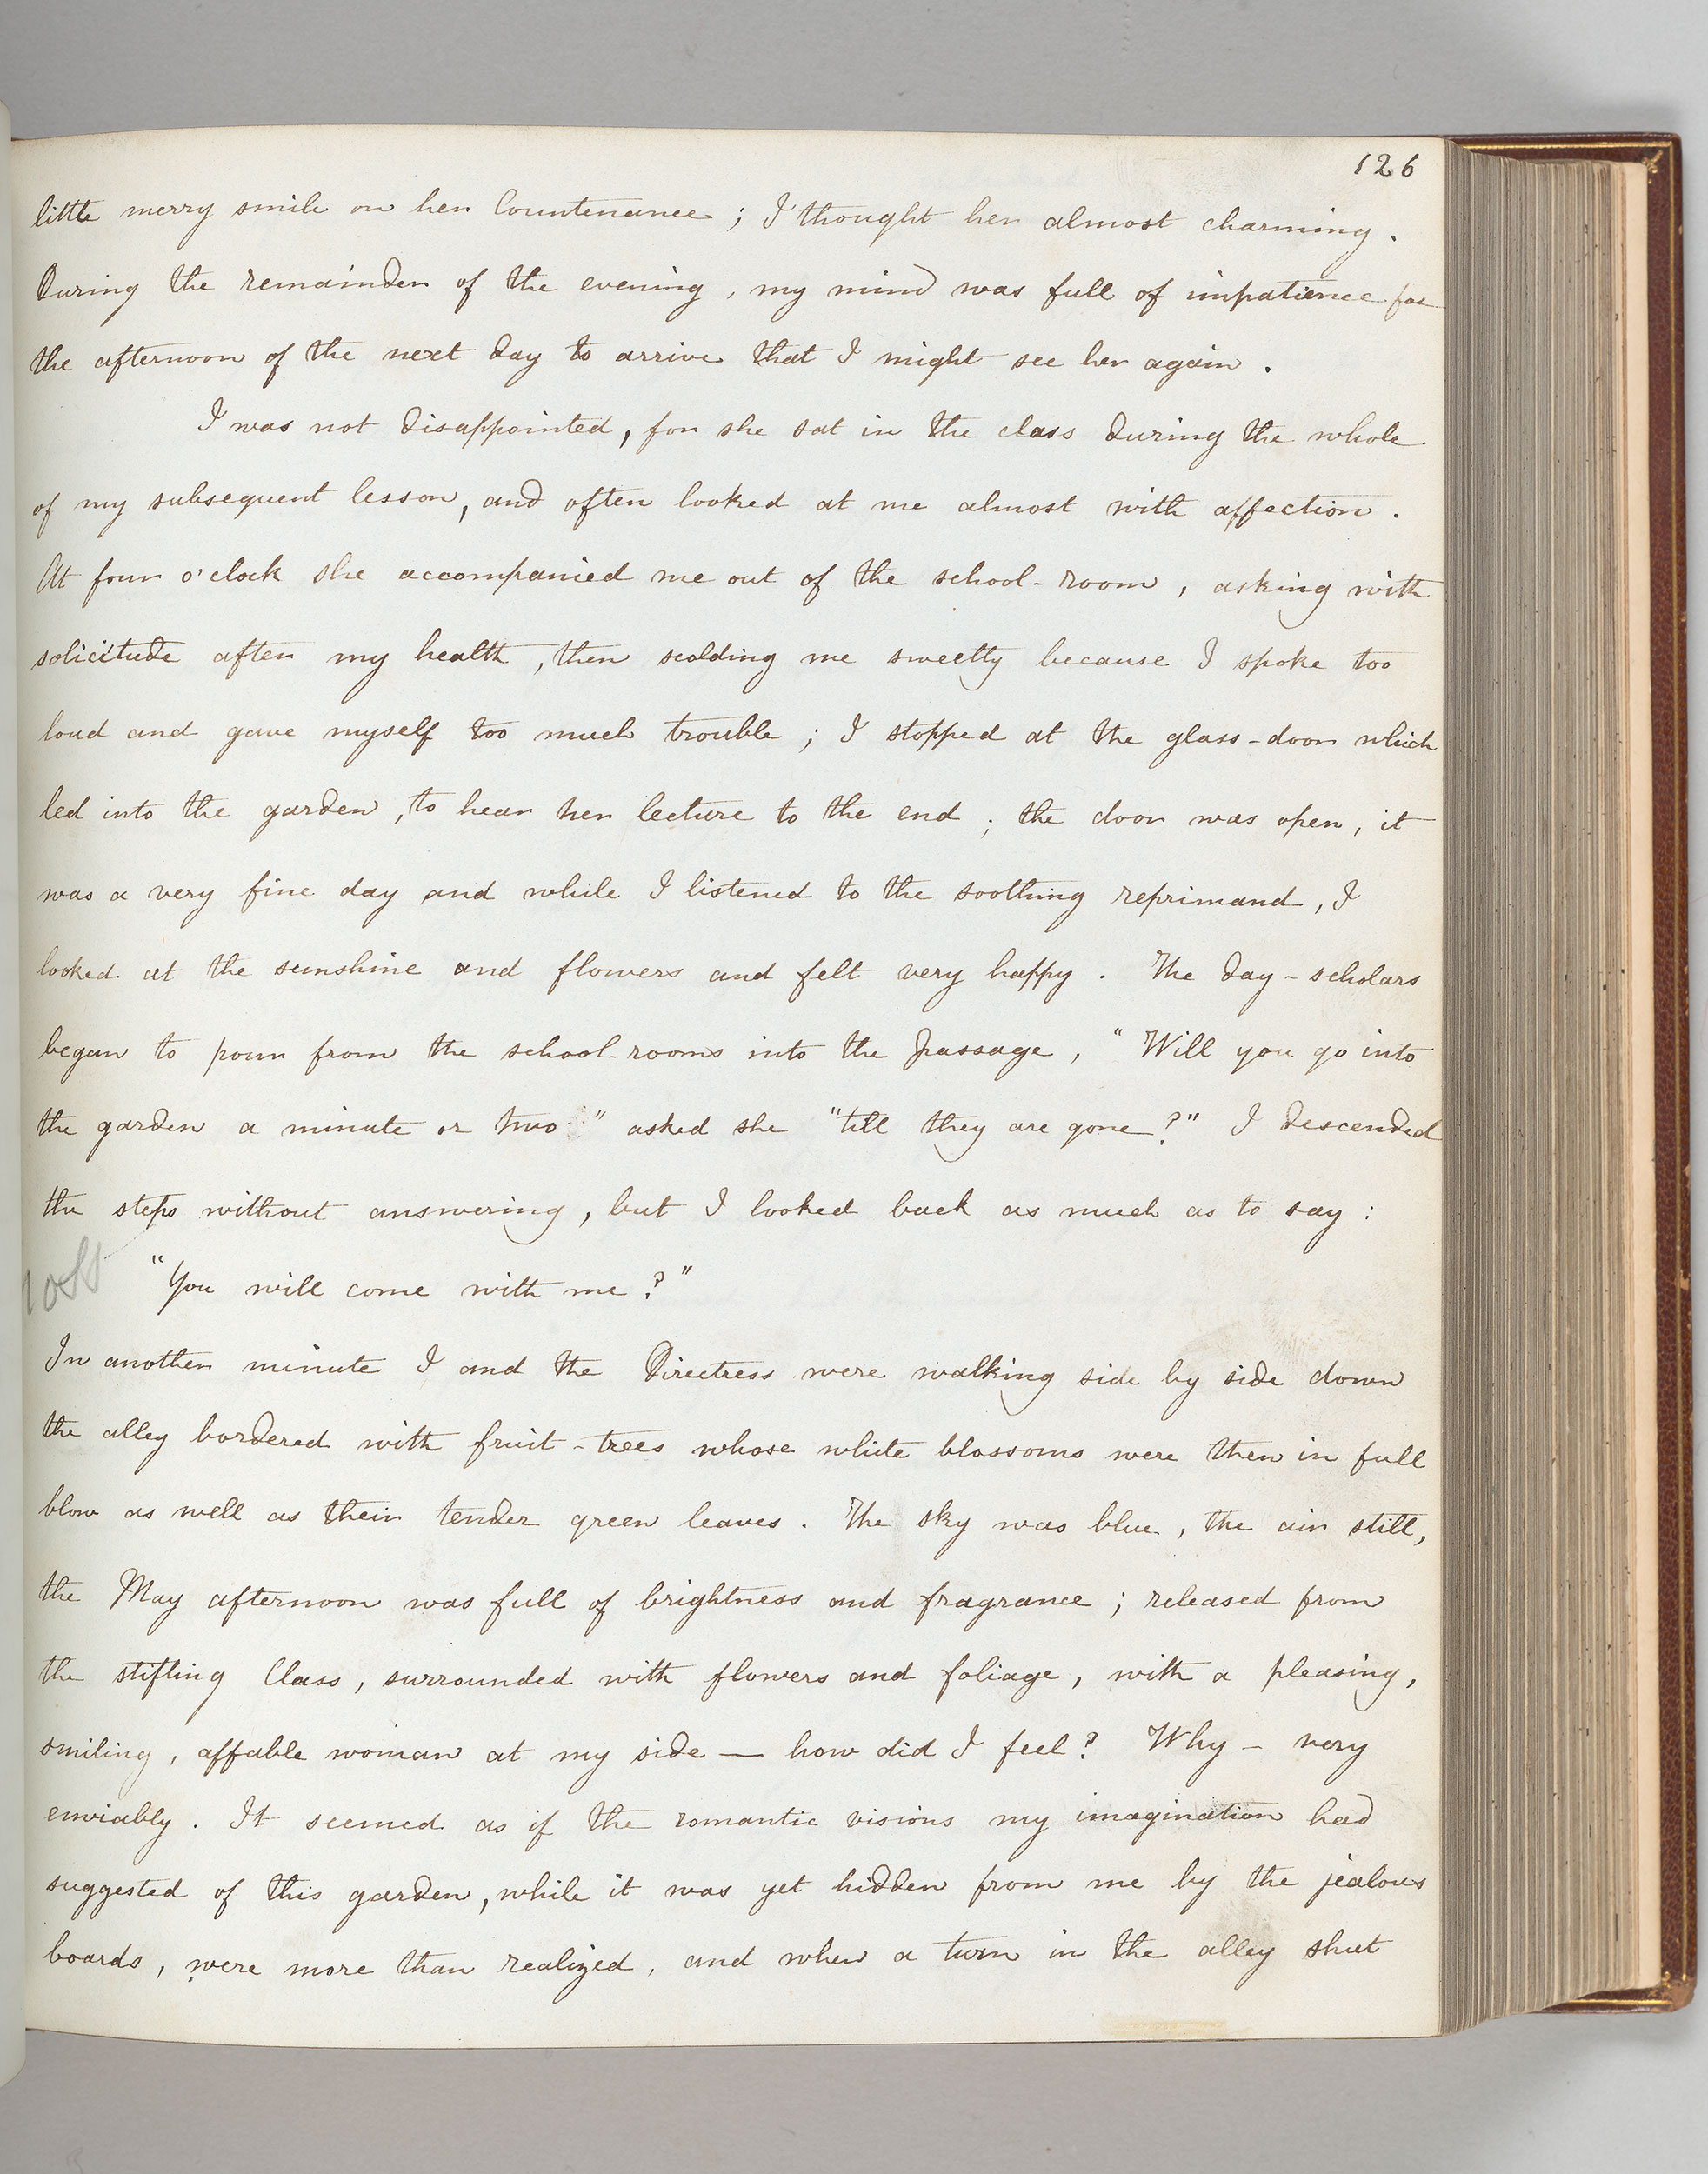 126
little merry smile on her Countenance ; I thought her almost charming .
During the remainder of the evening , my mind was full of impatience for
the afternoon of the next day to arrive that I might see her again .
I was not disappointed, for she sat in the class during the whole
of my subsequent lesson, and often looked at me almost with affection .
At four o'clock she accompanied me out of the school-room , asking with
solicitude after my health , then scolding me sweetly because I spoke too
loud and gave myself too much trouble ; I stopped at the glass-door which
led into the garden , to hear her lecture to the end ; the door was open , it
was a very fine day and while I listened to the soothing reprimand , I
looked at the sunshine and flowers and felt very happy . The day-scholars
began to pour from the school-rooms into the passage , " Will you go into
the garden a minute or two " asked she "till they are gone ?" I descended
the steps without answering , but I looked back as much as to say :
"You will come with me ?"
In another minute I and the Directress were walking side by side down
the alley bordered with fruit-trees whose white blossoms were then in full
blow as well as their tender green leaves . The sky was blue , the air still,
the May afternoon was full of brightness and fragrance ; released from
the stifling Class , surrounded with flowers and foliage , with a pleasing ,
smiling , affable woman at my side — how did I feel ? Why — very
enviably . It seemed as if the romantic visions my imagination had
suggested of this garden , while it was yet hidden from me by the jealous
boards , were more than realized , and when a turn in the alley shut